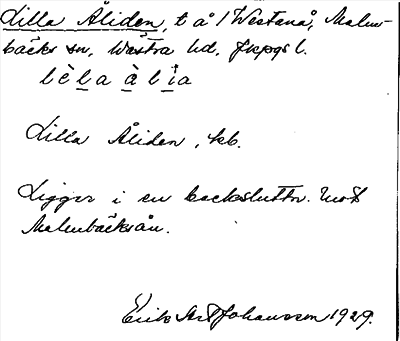 Lilla Åliden, t å 1 Westanå, Malm-
bäcks sn, Wästra hd, Jkpgs l.
lèla àlia
Lilla Åliden, kb.
Ligger i en backsluttn. mot
Malmbäcksån.
Erik Johansson 1929.